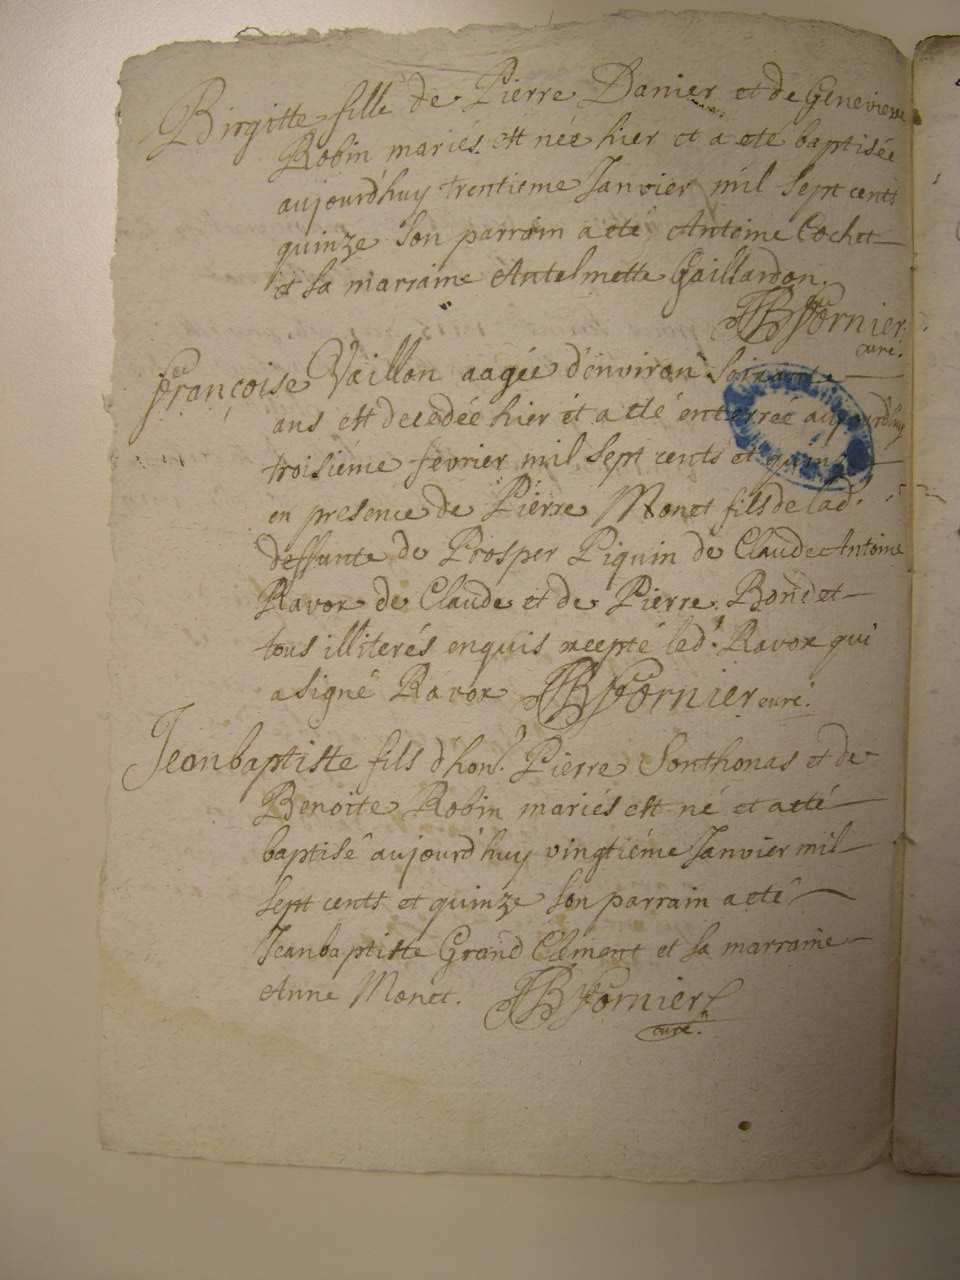 Birgitte fille de Pierre Danier et de Genevieve
Robin mariés est née hier et a eté baptisée
aujourd'huy trentieme Janvier mil sept cents
quinze son parrain a eté Antoine Cochet
et sa marraine Antelmette Gaillardon.
JB Fornier
curé.
françoise Vaillon aagée d'environ soixante
ans est decedée hier et a eté enterreé aujourd'huy
troisiéme février mil sept cents et quinze
en presence de Pierre Monet fils de lad.
deffunte de Prosper Piquin de Claude Antoine
Ravox de Claude et de Pierre Bondet
tous illiterés enquis excepté led. Ravox qui
a signé Ravox JB Fornier curé.
Jeanbaptiste fils d'hon. Pierre Sonthonas et de
Benoite Robin mariés est né et a eté
baptisé aujourd'huy vingtiéme Janvier mil
sept cents et quinze son parrain a eté
Jeanbaptiste Grand Clément et sa marraine
Anne Monet. JB Fornier
curé.